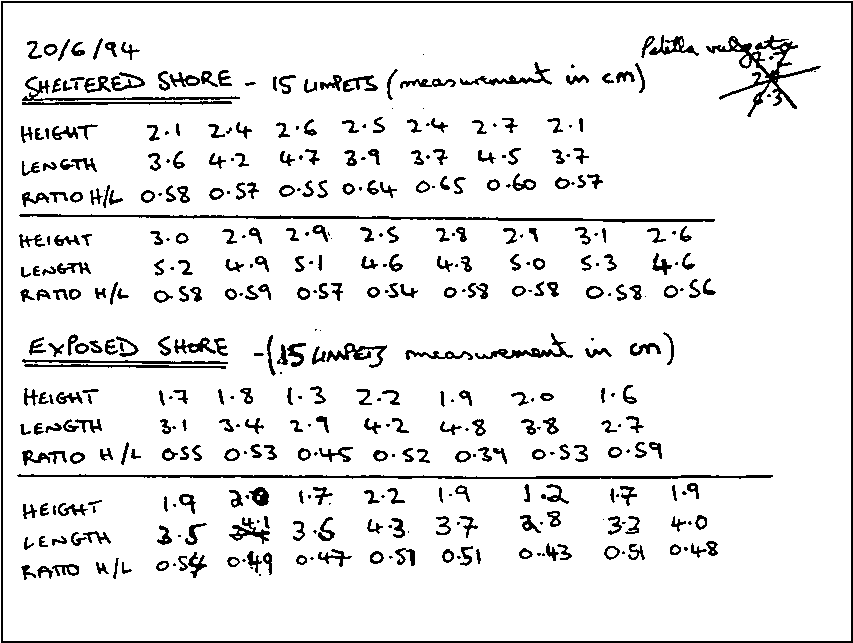 20/6/94 Patella vulgata
SHELTERED SHORE - 15 LIMPETS (measurement in cm)
HEIGHT 2.1 2.4 2.6 2.5 2.4 2.7 2.1
LENGTH 3.6 4.2 4.7 3.9 3.7 4.5 3.7
RATIO H/L 0.58 0.57 0.55 0.64 0.65 0.60 0.57
HEIGHT 3.0 2.9 2.9 2.5 2.8 2.9 3.1 2.6
LENGTH 5.2 4.9 5.1 4.6 4.8 5.0 5.3 4.6
RATIO H/L 0.58 0.59 0.57 0.54 0.58 0.58 0.58 0.56
EXPOSED SHORE - (15 LIMPETS measurement in cm)
HEIGHT 1.7 1.8 1.3 2.2 1.9 2.0 1.6
LENGTH 3.1 3.4 2.9 4.2 4.8 3.8 2.7
RATIO H/L 0.55 0.53 0.45 0.52 0.39 0.53 0.59
HEIGHT 1.9 2.0 1.7 2.2 1.9 1.2 1.7 1.9
LENGTH 3.5 4.1 3.6 4.3 3.7 2.8 3.3 4.0
RATIO H/L 0.54 0.49 0.47 0.51 0.51 0.43 0.51 0.48